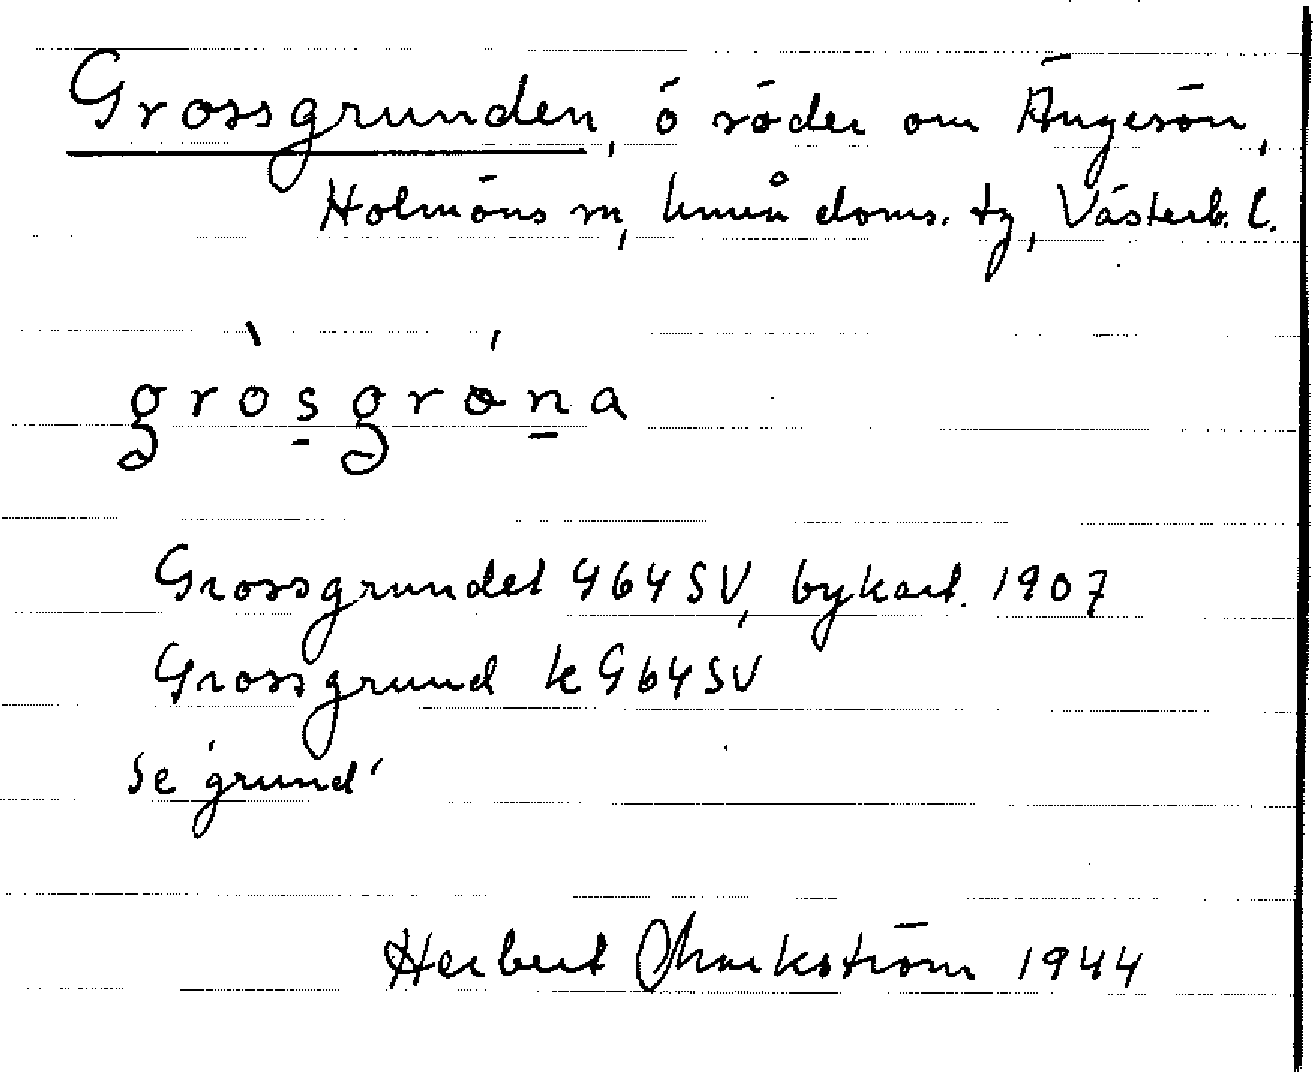 Grossgrunden, ö söder om Ängesön,
Holmöns sn, Umeå doms. tg, Västerb. l.
gròs̱gróṉa
Grossgrundet 464 SV, bykart. 1907
Grossgrund k G64SV
Se 'grund'
Herbert Markström 1944